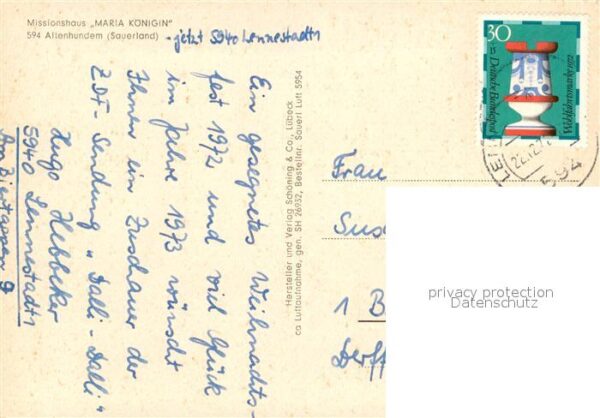 Missionshaus „MARIA KÖNIGIN"
594 Altenhundem (Sauerland)
- jetzt 5940 Lennestadt 1
Ein gesegnetes Weihnachts-
fest 1972 und viel Glück
im Jahre 1973 wünscht
Ihnen ein Zuschauer der
ZDF-Sendung „Dalli-Dalli"
Hugo Hebbeker
594 Lennestadt 1
9
Hersteller und Verlag Schöning & Co., Lübeck
ca Luftaufnahme, gen. SH 26932, Bestellnr. Sauerl Luft 5954
30
+15
Deutsche Bundespost
Wohlfahrtsmarke 1972
22.12.7
594
Frau
Sus
1 B
Derff
privacy protection
Datenschutz